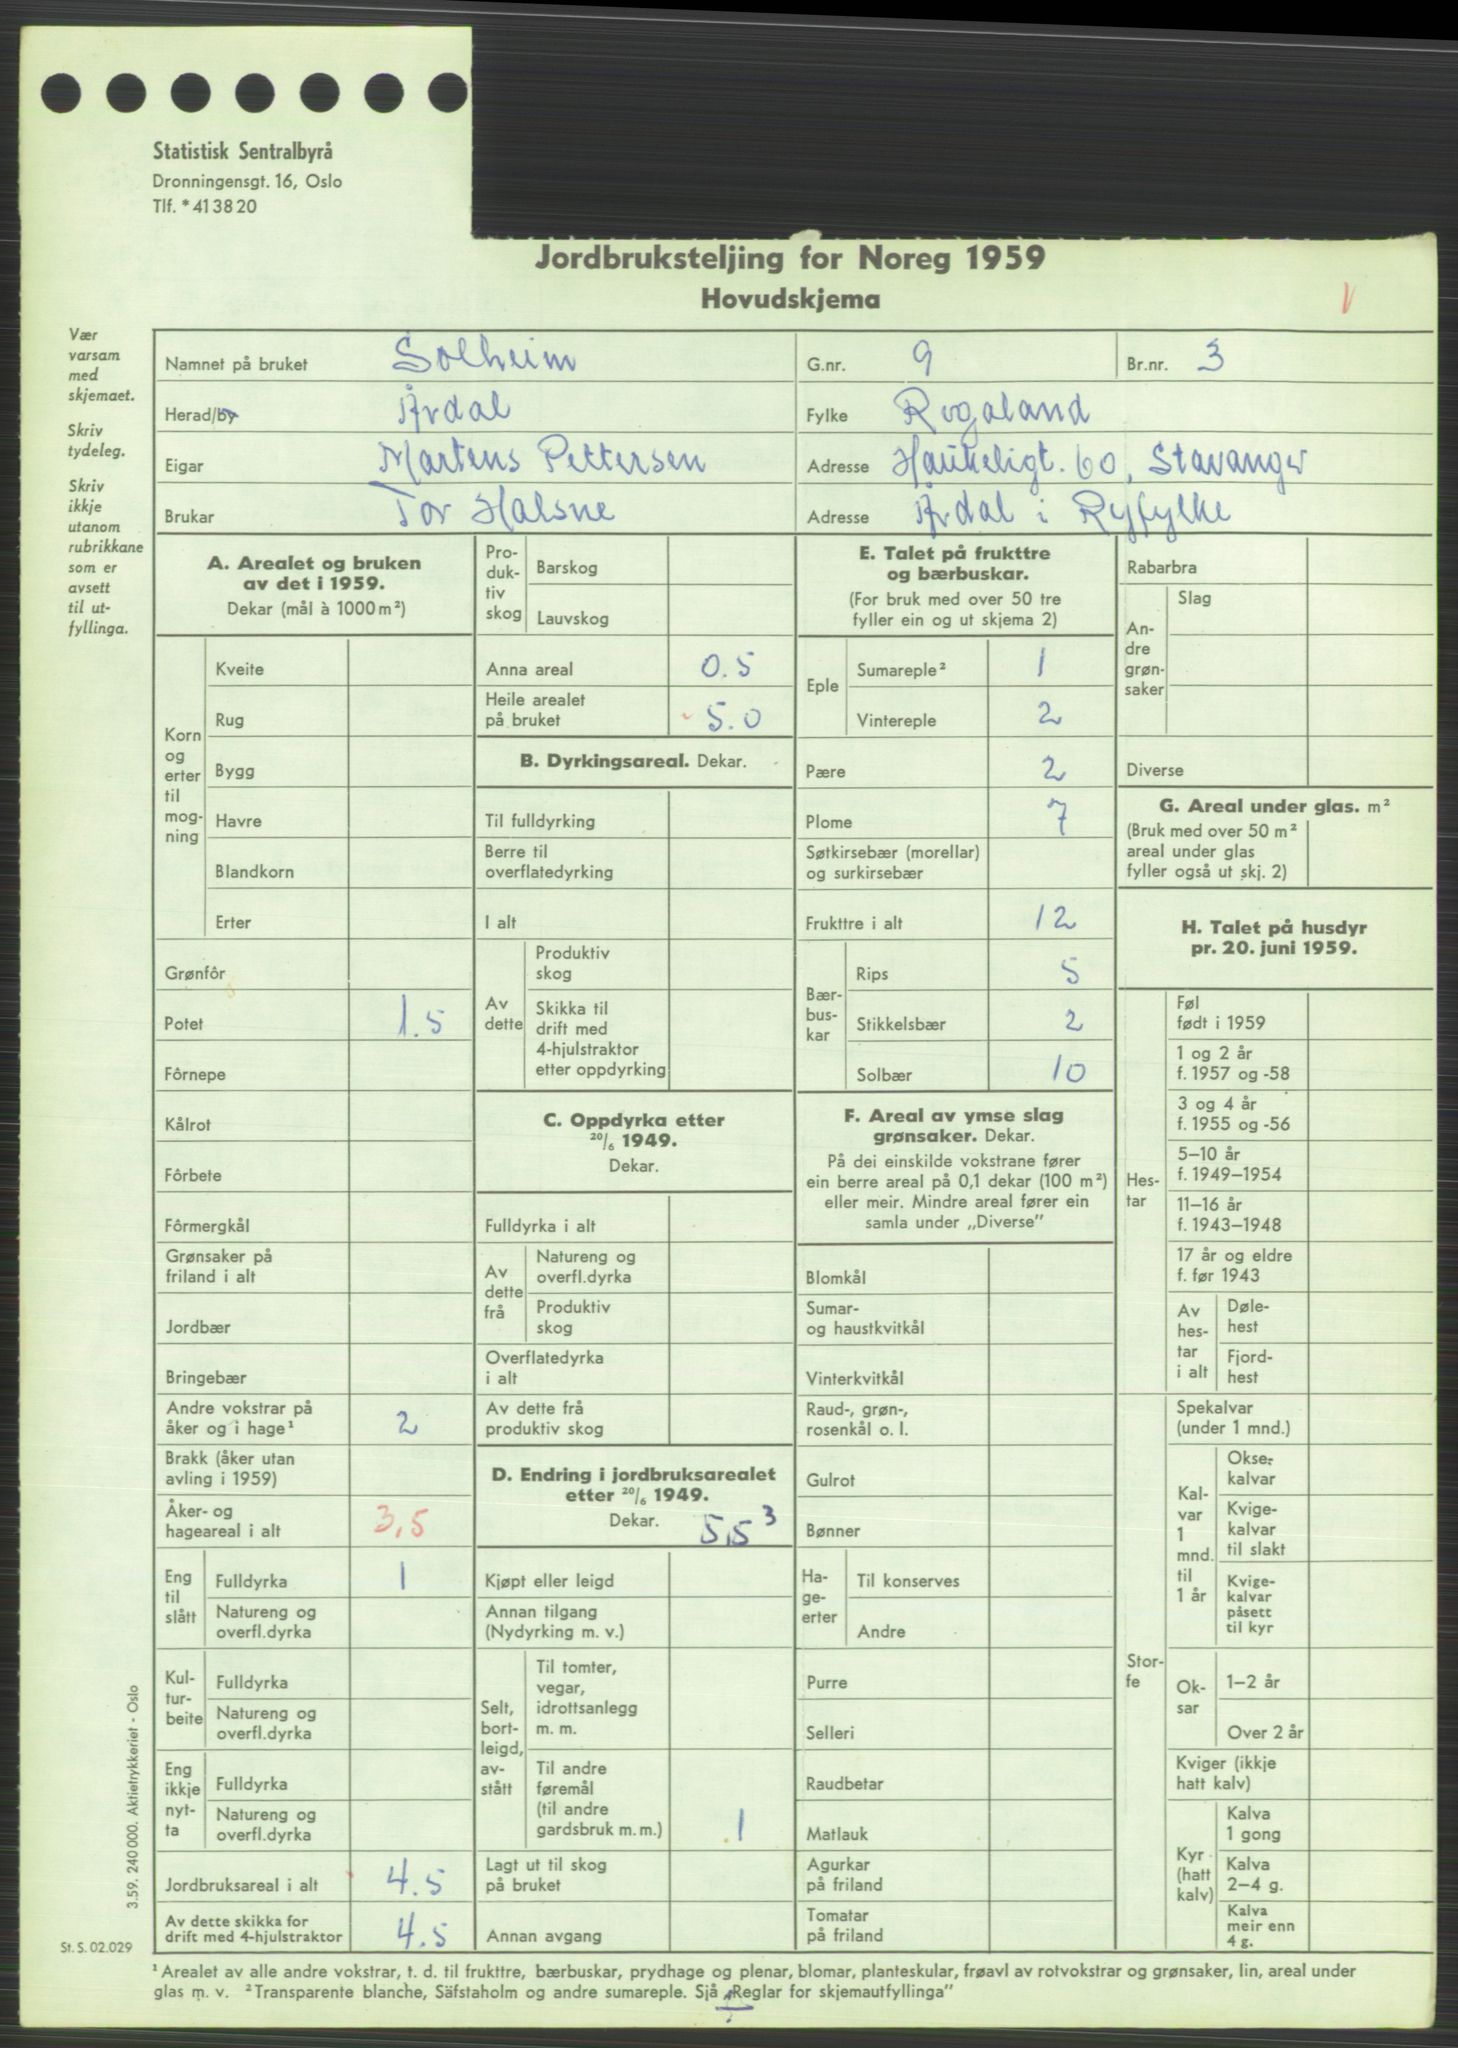 Statistisk Sentralbyrå
Dronningensgt. 16, Oslo
Tlf. * 41 38 20
Jordbruksteljing for Noreg 1959
Hovudskjema
Vær
varsam
med
skjemaet.
Skriv
tydeleg.
Skriv
ikkje
utanom
rubrikkane
som er
avsett
til ut-
fyllinga.
Namnet på bruket Solheim G.nr. 9 Br.nr. 3
Herad/by Årdal Fylke Rogaland
Eigar Martens Pettersen Adresse Haukeligt. 60, Stavanger
Brukar Tor Halsne Adresse Årdal i Ryfylke
A. Arealet og bruken
av det i 1959.
Dekar (mål à 1000 m²)
Korn
og
erter
til
mog-
ning
Kveite
Rug
Bygg
Havre
Blandkorn
Erter
Grønfôr
Potet 1.5
Fôrnepe
Kålrot
Fôrbete
Fôrmergkål
Grønsaker på
friland i alt
Jordbær
Bringebær
Andre vokstrar på
åker og i hage¹ 2
Brakk (åker utan
avling i 1959)
Åker- og
hageareal i alt 3,5
Eng
til
slått
Fulldyrka 1
Natureng og
overfl.dyrka
Kul-
tur-
beite
Fulldyrka
Natureng og
overfl.dyrka
Eng
ikkje
nyt-
ta
Fulldyrka
Natureng og
overfl.dyrka
Jordbruksareal i alt 4.5
Av dette skikka for
drift med 4-hjulstraktor 4.5
Pro-
duk-
tiv
skog
Barskog
Lauvskog
Anna areal 0.5
Heile arealet
på bruket 5.0
B. Dyrkingsareal. Dekar.
Til fulldyrking
Berre til
overflatedyrking
I alt
Av
dette
Produktiv
skog
Skikka til
drift med
4-hjulstraktor
etter oppdyrking
C. Oppdyrka etter
20/6 1949.
Dekar.
Fulldyrka i alt
Av
dette
frå
Natureng og
overfl.dyrka
Produktiv
skog
Overflatedyrka
i alt
Av dette frå
produktiv skog
D. Endring i jordbruksarealet
etter 20/6 1949.
Dekar. 5,5 3
Kjøpt eller leigd
Annan tilgang
(Nydyrking m. v.)
Selt,
bort-
leigd,
av-
stått
Til tomter,
vegar,
idrottsanlegg
m. m.
Til andre
føremål
(til andre
gardsbruk m. m.) 1
Lagt ut til skog
på bruket
Annan avgang
E. Talet på frukttre
og bærbuskar.
(For bruk med over 50 tre
fyller ein og ut skjema 2)
Eple
Sumareple² 1
Vintereple 2
Pære 2
Plome 7
Søtkirsebær (morellar)
og surkirsebær
Frukttre i alt 12
Bær-
bus-
kar
Rips 5
Stikkelsbær 2
Solbær 10
F. Areal av ymse slag
grønsaker. Dekar.
På dei einskilde vokstrane fører
ein berre areal på 0,1 dekar (100 m²)
eller meir. Mindre areal fører ein
samla under „Diverse”
Blomkål
Sumar-
og haustkvitkål
Vinterkvitkål
Raud-, grøn-,
rosenkål o. l.
Gulrot
Bønner
Ha-
ge-
erter
Til konserves
Andre
Purre
Selleri
Raudbetar
Matlauk
Agurkar
på friland
Tomatar
på friland
Rabarbra
An-
dre
grøn-
saker
Slag
Diverse
G. Areal under glas. m²
(Bruk med over 50 m²
areal under glas
fyller også ut skj. 2)
H. Talet på husdyr
pr. 20. juni 1959.
Hes-
tar
Føl
født i 1959
1 og 2 år
f. 1957 og -58
3 og 4 år
f. 1955 og -56
5–10 år
f. 1949–1954
11–16 år
f. 1943–1948
17 år og eldre
f. før 1943
Av
hes-
tar
i alt
Døle-
hest
Fjord-
hest
Stor-
fe
Spekalvar
(under 1 mnd.)
Kal-
var
1
mnd.
til
1 år
Okse-
kalvar
Kvige-
kalvar
til slakt
Kvige-
kalvar
påsett
til kyr
Ok-
sar
1–2 år
Over 2 år
Kviger (ikkje
hatt kalv)
Kyr
(hatt
kalv)
Kalva
1 gong
Kalva
2–4 g.
Kalva
meir enn
4 g.
3.59. 240 000. Aktietrykkeriet - Oslo
St. S. 02.029
¹ Arealet av alle andre vokstrar, t. d. til frukttre, bærbuskar, prydhage og plenar, blomar, planteskular, frøavl av rotvokstrar og grønsaker, lin, areal under
glas m. v. ² Transparente blanche, Säfstaholm og andre sumareple. Sjå „Reglar for skjemautfyllinga”